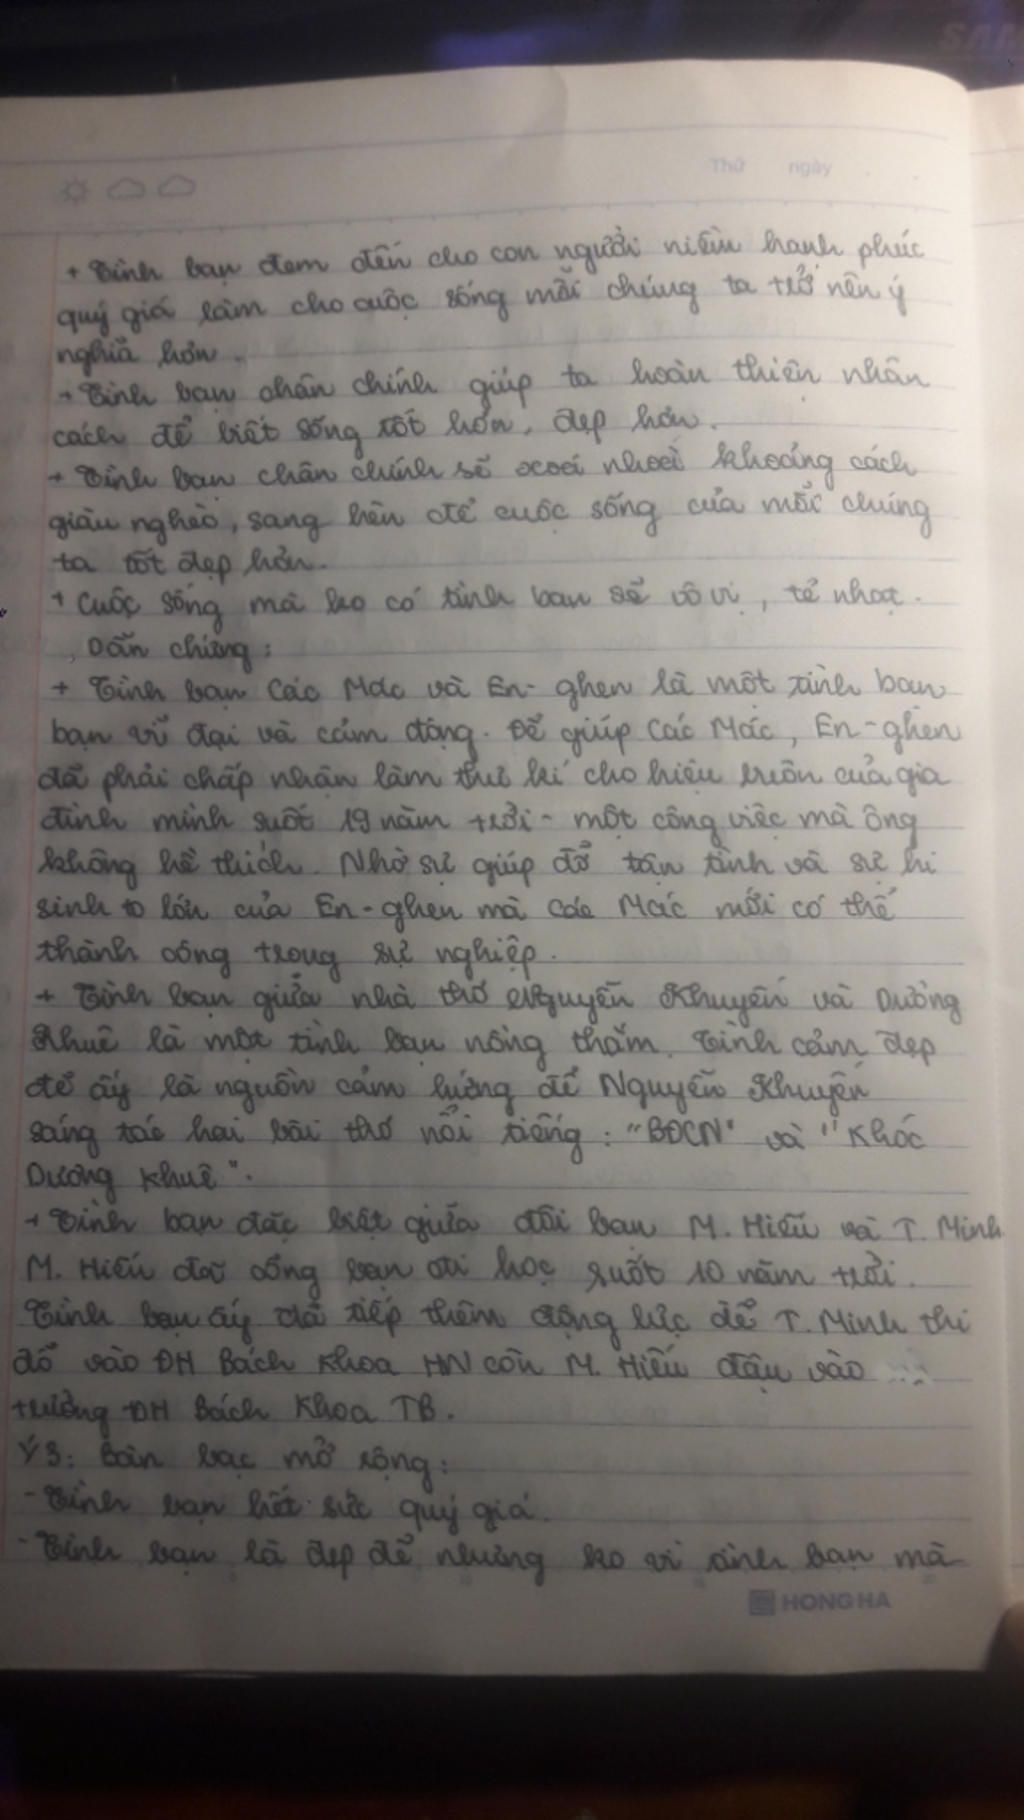 SAM
Thứ ngày
+ Tình bạn đem đến cho con người niềm hạnh phúc
quý giá làm cho cuộc sống mỗi chúng ta trở nên ý
nghĩa hơn.
+ Tình bạn chân chính giúp ta hoàn thiện nhân
cách để biết sống tốt hơn, đẹp hơn.
+ Tình bạn chân chính sẽ xoá nhoà khoảng cách
giàu nghèo, sang hèn để cuộc sống của mỗi chúng
ta tốt đẹp hơn.
+ Cuộc sống mà ko có tình bạn sẽ vô vị, tẻ nhạt.
, Dẫn chứng:
+ Tình bạn Các Mác và En-ghen là một tình bạn
bạn vĩ đại và cảm động. Để giúp Các Mác, En-ghen
đã phải chấp nhận làm thư kí cho hiệu buôn của gia
đình mình suốt 19 năm trời - một công việc mà ông
không hề thích. Nhờ sự giúp đỡ tận tình và sự hi
sinh to lớn của En-ghen mà Các Mác mới có thể
thành công trong sự nghiệp.
+ Tình bạn giữa nhà thơ Nguyễn Khuyến và Dương
Khuê là một tình bạn nồng thắm. Tình cảm đẹp
đẽ ấy là nguồn cảm hứng để Nguyễn Khuyến
sáng tác hai bài thơ nổi tiếng: "BĐCN" và "Khóc
Dương Khuê".
+ Tình bạn đặc biệt giữa đôi bạn M. Hiếu và T. Minh
M. Hiếu đã cõng bạn đi học suốt 10 năm trời.
Tình bạn ấy đã tiếp thêm động lực để T. Minh thi
đỗ vào ĐH Bách Khoa HN còn M. Hiếu đậu vào
trường ĐH Bách Khoa TB.
Ý 3: Bàn bạc mở rộng:
- Tình bạn hết sức quý giá.
- Tình bạn là đẹp đẽ nhưng ko vì tình bạn mà
HONG HA